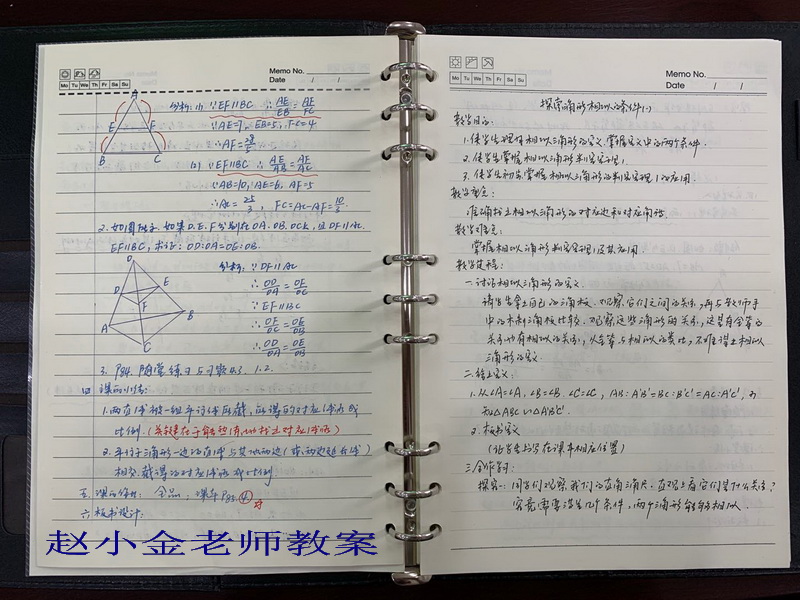 Memo No.
Date / /
Mo Tu We Th Fr Sa Su
A
E F
B C
分析: (1) ∵EF∥BC ∴AE/EB=AF/FC
∵AE=7, EB=5, FC=4
∴AF=28/5
(2) ∵EF∥BC ∴AE/AB=AF/AC
∵AB=10, AE=6, AF=5
∴AC=25/3, FC=AC-AF=10/3
2. 如图所示, 如果D.E.F分别在OA.OB.OC上, 且DF∥AC.
EF∥BC, 求证: OD:OA=OE:OB.
D E
F
A B
C
分析: ∵DF∥AC
∴OD/OA=OF/OC
∵EF∥BC
∴OF/OC=OE/OB
∴OD/OA=OE/OB
3. P84. 随堂练习与习题4.3. 1.2.
四 课的小结:
1. 两直线被一组平行线所截, 所得的对应线段成
比例. (关键在于能熟练地找出对应线段)
2. 平行于三角形一边的直线与其他两边(或两边延长线)
相交, 截得的对应线段成比例
五. 课的作业:
六 板书设计:
赵小金老师教案
Memo No.
Date / /
Mo Tu We Th Fr Sa Su
探索三角形相似的条件(1)
教学目的:
1. 使学生理解相似三角形的定义, 掌握定义中的两个条件.
2. 使学生掌握相似三角形判定定理1.
3. 使学生初步掌握相似三角形的判定定理1的应用.
教学重点:
准确找出相似三角形的对应边和对应角
教学难点:
掌握相似三角形判定定理1及其应用.
教学过程:
一. 讨论相似三角形的定义.
请学生拿出自己的三角板, 观察它们之间的关系, 再与教师手
中的木制三角板比较, 观察这些三角形的关系, 这里有全等的
关系, 也有相似的关系, 从全等与相似的类比, 不难得出相似
三角形的定义
二. 给出定义:
1. 从∠A=∠A', ∠B=∠B', ∠C=∠C', AB:A'B'=BC:B'C'=AC:A'C', 可
知△ABC∽△A'B'C'.
2. 板书定义
(让学生书写在课本相应位置)
三. 合作学习:
探究一: 同学们观察我们的直角三角尺, 直观上看它们是什么关系?
究竟需要满足几个条件, 两个三角形能够相似.